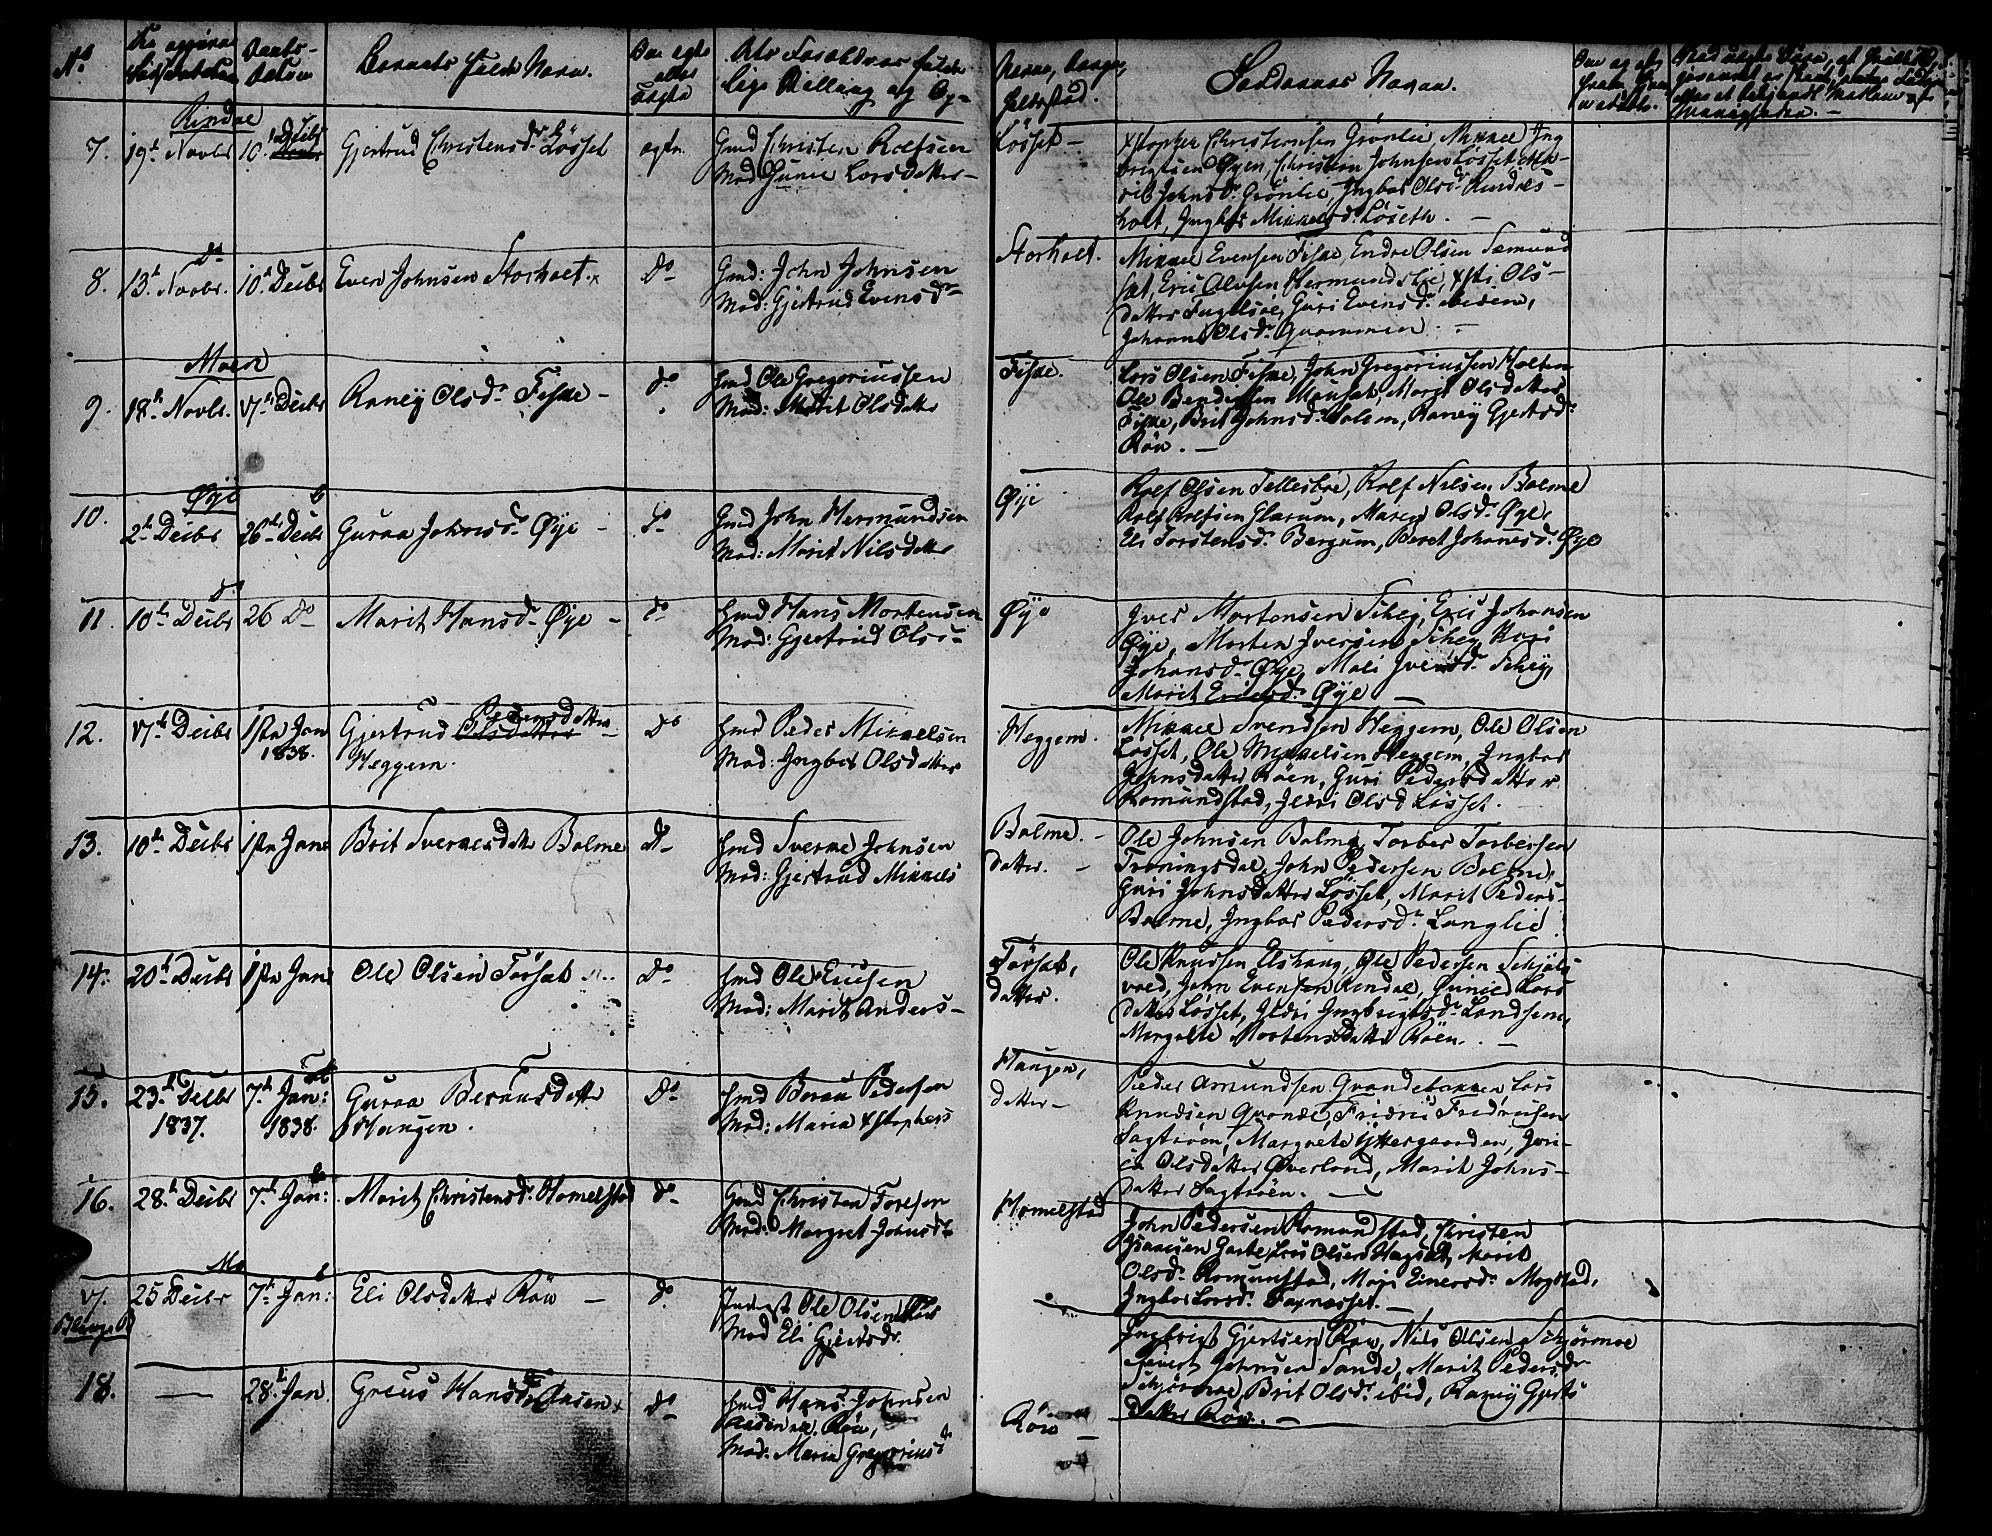 No
Daabs-
Datum
Barnets fulde Navn.
Om ægte
eller
uægte
Navne, Gaarde,
Faddernes Navne.
Rindal
7. 19t Novbr 10. Decbr Gjertrud Christensdr Løsset ægte. Gmd Christen Rolfsen
Mod Gunil Larsdatter -
Løsset -
Xstopher Christensen Grønlie, Mikkel Ing
brigtsen Øyen, Christen Johnsen Løsset, Ma-
rit Johnsdr Grønlie, Ingbor Olsdr Rindals-
holt, Ingbor Mikkelsdr Løseth. -
Do
8. 13t Novbr. 10t Decbr Even Johnsen Storholt. Do Gmd: John Johnsen
Mod: Gjertrud Evensdr
Storholt.
Mikkel Evensen Fiske, Endre Olsen Semund
set, Eric Olufsen Hermundslie, Xsti Ols-
datter Fugelsøe, Guri Evensdr ibidem,
Johanna Olsdr Qvammen. -
Moen
9. 18t Novbr. 17t Decbr Raney Olsdr Fiske - do Gmd Ole Gregoriussen
Mod: Marit Olsdatter
Fiske.
Lars Olsen Fiske, John Gregoriussen Holten
Ole Bendixen Mauset, Marit Olsdatter
Fiske, Brit Johnsdr Solem, Raney Gjertsdr
Røv. -
Øye
10. 2t Decbr 26t Decbr Guraa Johnsdr Øye - do Gmd John Hermundsen
Mod: Marit Nilsdatter
Øye
Rolf Olsen Tellesbøe, Rolf Nilsen Bolme
Rolf Rolfsen Glærum, Maren Olsdr Øye
Eli Torstensdr Bergum, Beret Johansdr Øye
do
11. 10t Decbr 26 Do Marit Hansdr Øye - do Gmd Hans Mortensen
Mod: Gjertrud Ols-
Øye
Iver Mortensen Schey, Eric Johansen
Øye, Morten Iversen Schey, Kari
Johansdr Øye, Mali Iversdr Schey,
Marit Ericsdr Øye -
12. 17t Decbr 1ste Jan
1838.
Gjertrud Olsdatter Pedersdatter
Heggem.
Do Gmd Peder Mikkelsen
Mod: Ingbor Olsdatter
Heggem.
Mikkel Svendsen Heggem, Ole Olsen
Løsset, Ole Mikkelsen Heggem, Ingbor
Johnsdatter Røen, Guri Pedersdatter
Romundstad, Ildri Olsd Løsset.
13. 10t Decbr 1ste Jan Brit Sverkesdatter Bolme do Gmd Sverke Johnsen
Mod: Gjertrud Mikkels
Bolme. -
datter. -
Ole Johnsen Bolme, Torber Torbersen
Trøningsdal, John Pedersen Bolme,
Guri Johnsdatter Løsset, Marit Peders-
Bolme, Ingbor Pedersdr Langlie
14. 20t Decbr 1ste Jan Ole Olsen Tørset Do Gmd Ole Ericsen
Mod: Marit Anders-
Tørset,
datter.
Ole Knudsen Elshaug, Ole Pedersen Schjøls
vold, John Evensen Rindal, Gunild Lars
datter Løsset, Ildri Ingbrigtsdr Landsem,
Margrete Mortensdatter Røen. -
15. 23t Decbr
1837.
7t Jan:
1838.
Guraa Beraasdatter
Haugen.
Do Gmd Beraa Pedersen
Mod: Maria Xstophers
Haugen,
datter -
Peder Amundsen Qvandebakken, Lars
Knudsen Qvande, Fridric Fridricsen
Sagtrøen, Margrete Yttergaarden, Guri-
Olsdatter Øverland, Marit Johns-
datter Sagtrøen. -
16. 28t Decbr 7t Jan: Marit Christensdr Homelstad do Gmd Christen Toresen
Mod: Margret Johnsdr
Homelstad
John Pedersen Romundstad, Christen
Isaacsen Garte, Lars Olsen Hagset, Marit
Olsdr Romunstad, Mari Einersdr Mogstad,
Ingbor Larsdr Foxnesset. -
Mo
17. 25 Decbr 7t Jan: Eli Olsdatter Røv - do Inderst Ole Olsen Røv
Mod Eli Gjertsdr.
Ingbrigt Gjertsen Røv, Nils Olsen Schjørmoe
Sivert Johnsen Sande, Marit Pedersdr
Schjørmoe, Brit Olsdr ibid, Raney Gjerts
datter Røv. -
18. - 28t Jan. Greus Hansdr Aasen do Gmd Hans Johnsen
Røv,
Mod: Maria Gregoriusd
Røv -